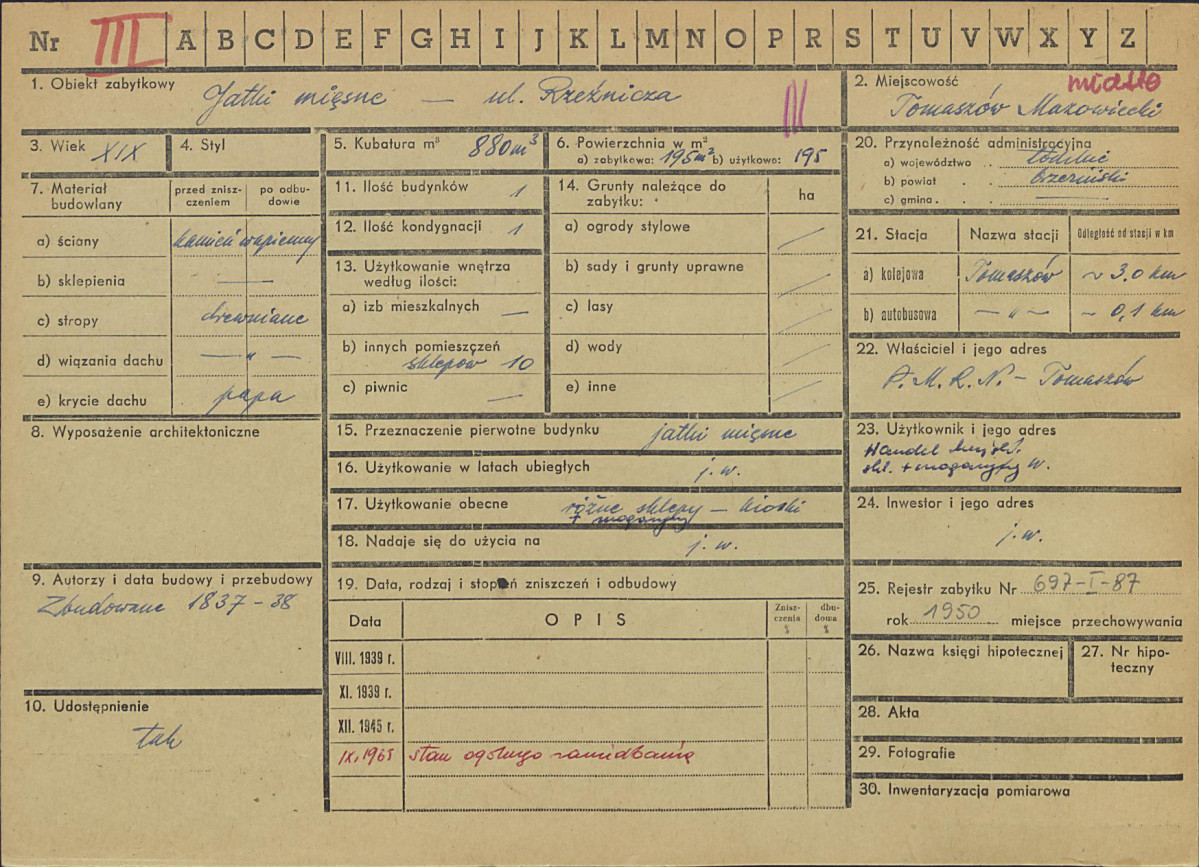 Nr III A B C D E F G H I J K L M N O P R S T U V W X Y Z
1. Obiekt zabytkowy
Jatki mięsne — ul. Rzeźnicza
III
2. Miejscowość
miasto
Tomaszów Mazowiecki
3. Wiek XIX
4. Styl
5. Kubatura m³ 880 m³
6. Powierzchnia w m²
a) zabytkowa: 195 m² b) użytkowa: 195
20. Przynależność administracyjna
a) województwo . . łódzkie
b) powiat . . brzeziński
c) gmina . . —
7. Materiał budowlany
przed znisz-
czeniem
po odbu-
dowie
a) ściany kamień wapienny
b) sklepienia —
c) stropy drewniane
d) wiązania dachu — „ —
e) krycie dachu papa
8. Wyposażenie architektoniczne
9. Autorzy i data budowy i przebudowy
Zbudowane 1837-38
10. Udostępnienie
tak
11. Ilość budynków 1
12. Ilość kondygnacji 1
13. Użytkowanie wnętrza
według ilości:
a) izb mieszkalnych —
b) innych pomieszczeń
sklepów 10
c) piwnic —
14. Grunty należące do
zabytku:
ha
a) ogrody stylowe
b) sady i grunty uprawne
c) lasy
d) wody
e) inne
15. Przeznaczenie pierwotne budynku jatki mięsne
16. Użytkowanie w latach ubiegłych j. w.
17. Użytkowanie obecne różne sklepy — kioski
+ magazyny
18. Nadaje się do użycia na j. w.
19. Data, rodzaj i stopień zniszczeń i odbudowy
Data
OPIS
Znisz-
czenia
%
dbu-
dowa
%
VIII. 1939 r.
XI. 1939 r.
XII. 1945 r.
IX. 1965 stan ogólnego zaniedbania
21. Stacja
Nazwa stacji
Odległość od stacji w km
a) kolejowa Tomaszów ~ 3,0 km
b) autobusowa — „ — ~ 0,1 km
22. Właściciel i jego adres
P. M. R. N. — Tomaszów
23. Użytkownik i jego adres
Handel
skl. + magazyny w.
24. Inwestor i jego adres
j. w.
25. Rejestr zabytku Nr 697-I-87
rok 1950 miejsce przechowywania
26. Nazwa księgi hipotecznej
27. Nr hipo-
teczny
28. Akta
29. Fotografie
30. Inwentaryzacja pomiarowa